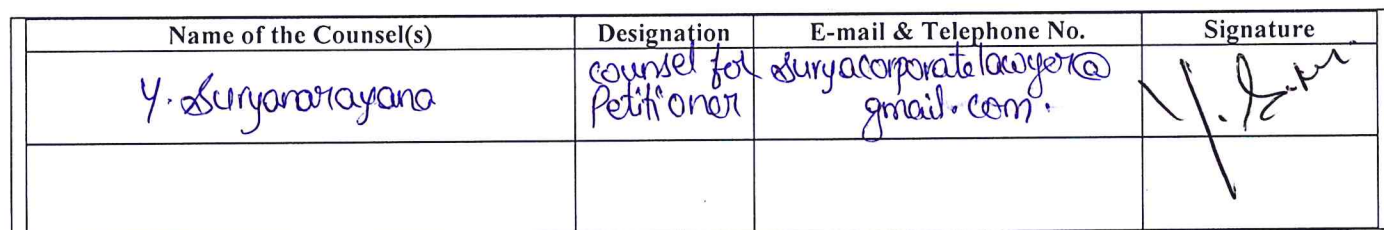 Name of the Counsel(s) Designation E-mail & Telephone No. Signature
Y. Suryanarayana counsel for suryacorporatelawyer@
Petitioner gmail.com.